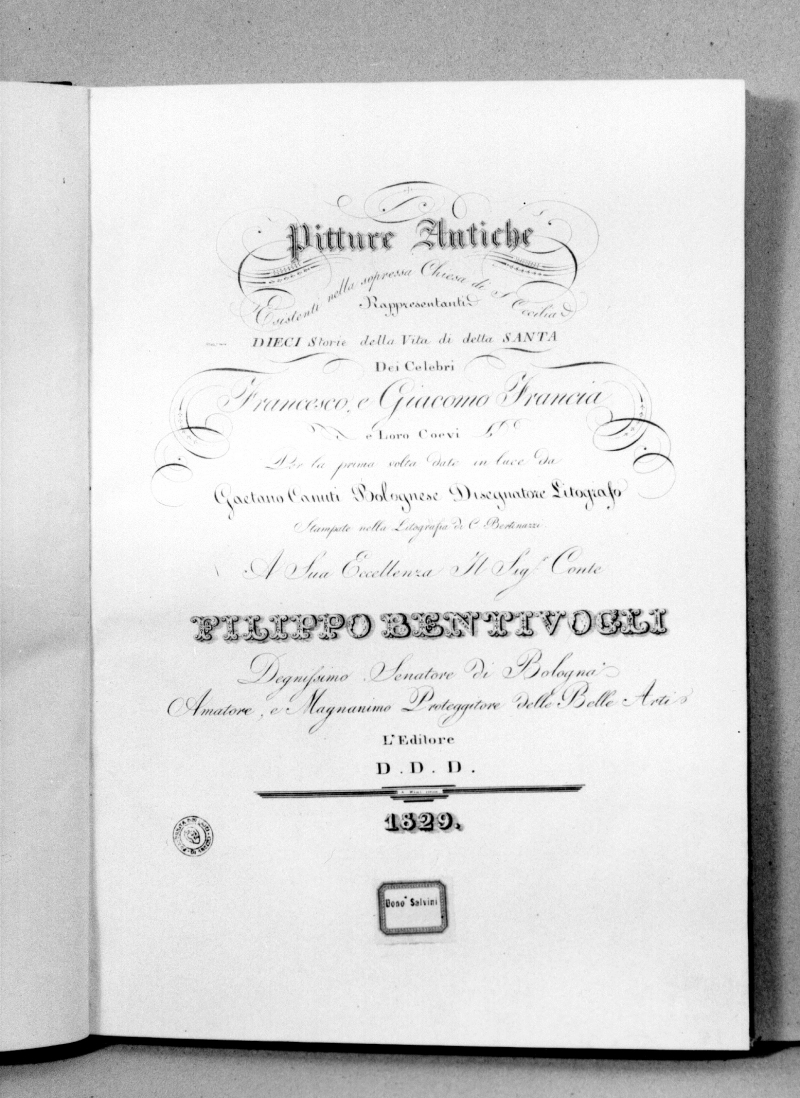 Pitture Antiche
Esistenti nella sopressa Chiesa di S. Cecilia
Rappresentanti
DIECI Storie della Vita di detta SANTA
Dei Celebri
Francesco, e Giacomo Francia
e Loro Coevi
Per la prima volta date in luce da
Gaetano Canuti Bolognese Disegnatore Litografo
Stampate nella Litografia di C. Bertinazzi
A Sua Eccellenza Il Sig.r Conte
FILIPPO BENTIVOGLI
Degnissimo Senatore di Bologna
Amatore, e Magnanimo Proteggitore delle Belle Arti
L'Editore
D. D. D.
1829.
Dono Salvini